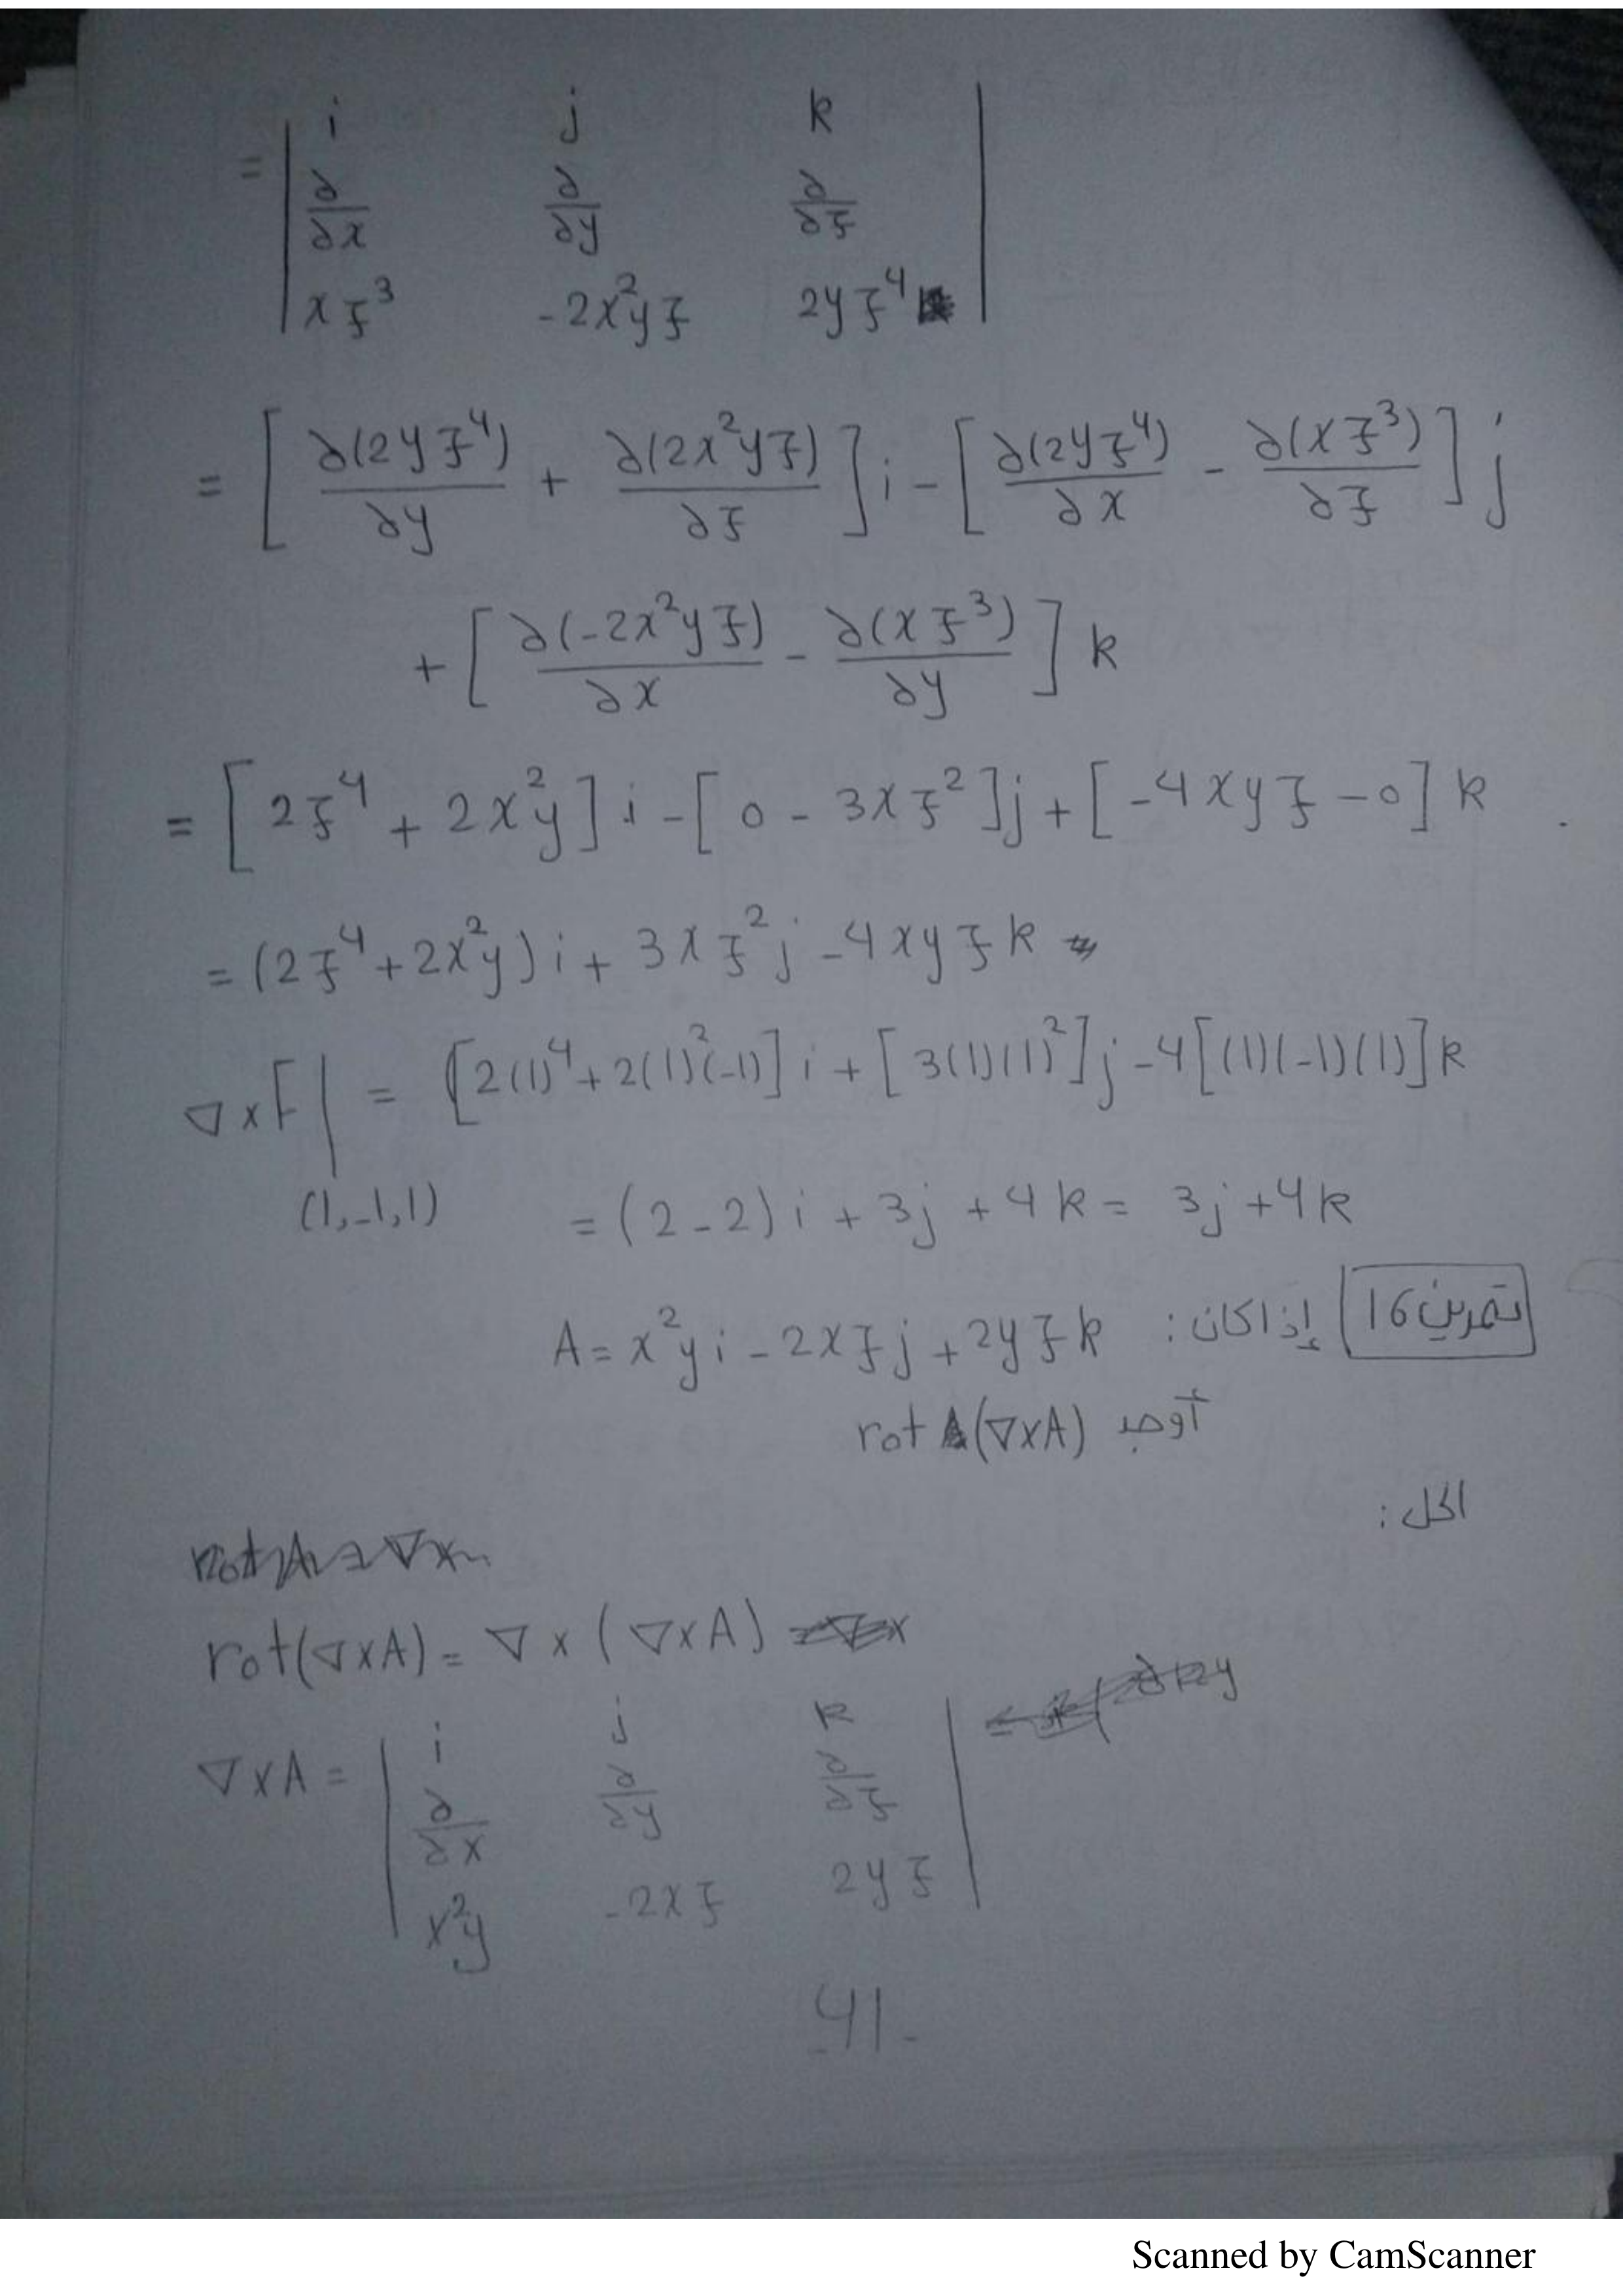 = | i j k |
| ∂/∂x ∂/∂y ∂/∂z |
| xz³ -2x²yz 2yz⁴ |
= [ ∂(2yz⁴)/∂y + ∂(2x²yz)/∂z ] i - [ ∂(2yz⁴)/∂x - ∂(xz³)/∂z ] j
+ [ ∂(-2x²yz)/∂x - ∂(xz³)/∂y ] k
= [ 2z⁴ + 2x²y ] i - [ 0 - 3xz² ] j + [ -4xyz - 0 ] k
= (2z⁴ + 2x²y) i + 3xz² j - 4xyz k
∇xF | = [2(1)⁴ + 2(1)²(-1)] i + [3(1)(1)²] j - 4[(1)(-1)(1)] k
(1,-1,1) = (2-2) i + 3j + 4k = 3j + 4k
تمرين 16 إذا كان: A = x²y i - 2xz j + 2yz k
أوجد rot (∇xA)
الحل:
rot(∇xA) = ∇ x (∇xA)
∇xA = | i j k |
| ∂/∂x ∂/∂y ∂/∂z |
| x²y -2xz 2yz |
-41-
Scanned by CamScanner